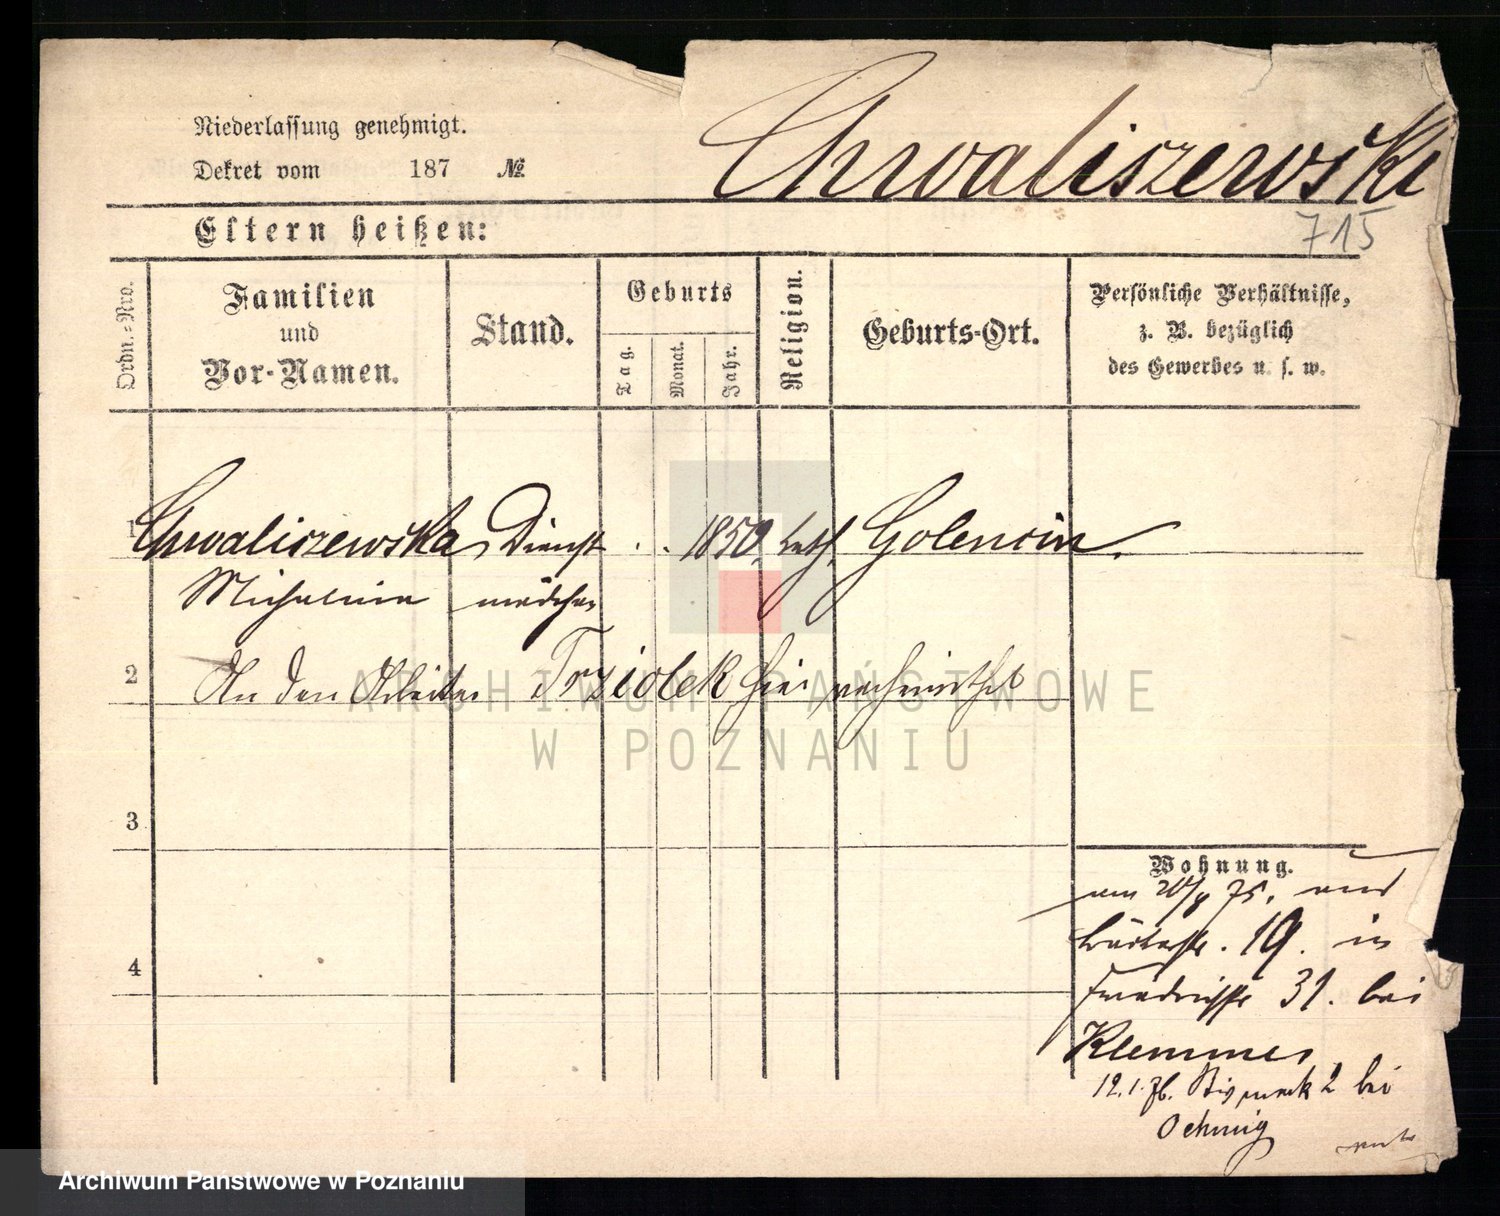 Chwaliszewski
Niederlassung genehmigt.
Dekret vom 187 №
715
Eltern heißen:
Ordn.-Nro.
Familien und Vor-Namen.
Stand.
Geburts
Tag.
Monat.
Jahr.
Religion.
Geburts-Ort.
Persönliche Verhältnisse,
z. B. bezüglich
des Gewerbes u. s. w.
1 Chwaliszewska Dienst . . 1850. kath. Golencin.
Michalina mädchen
2 An den Arbeiter Trziolek hier verheirathet
3
Wohnung.
am 20/8 75. von
19. in
Friedrichstr 31. bei
4
Klemmer
12.1.76. Bismarck 2 bei
Oehmig
ARCHIWUM PAŃSTWOWE
W POZNANIU
Archiwum Państwowe w Poznaniu